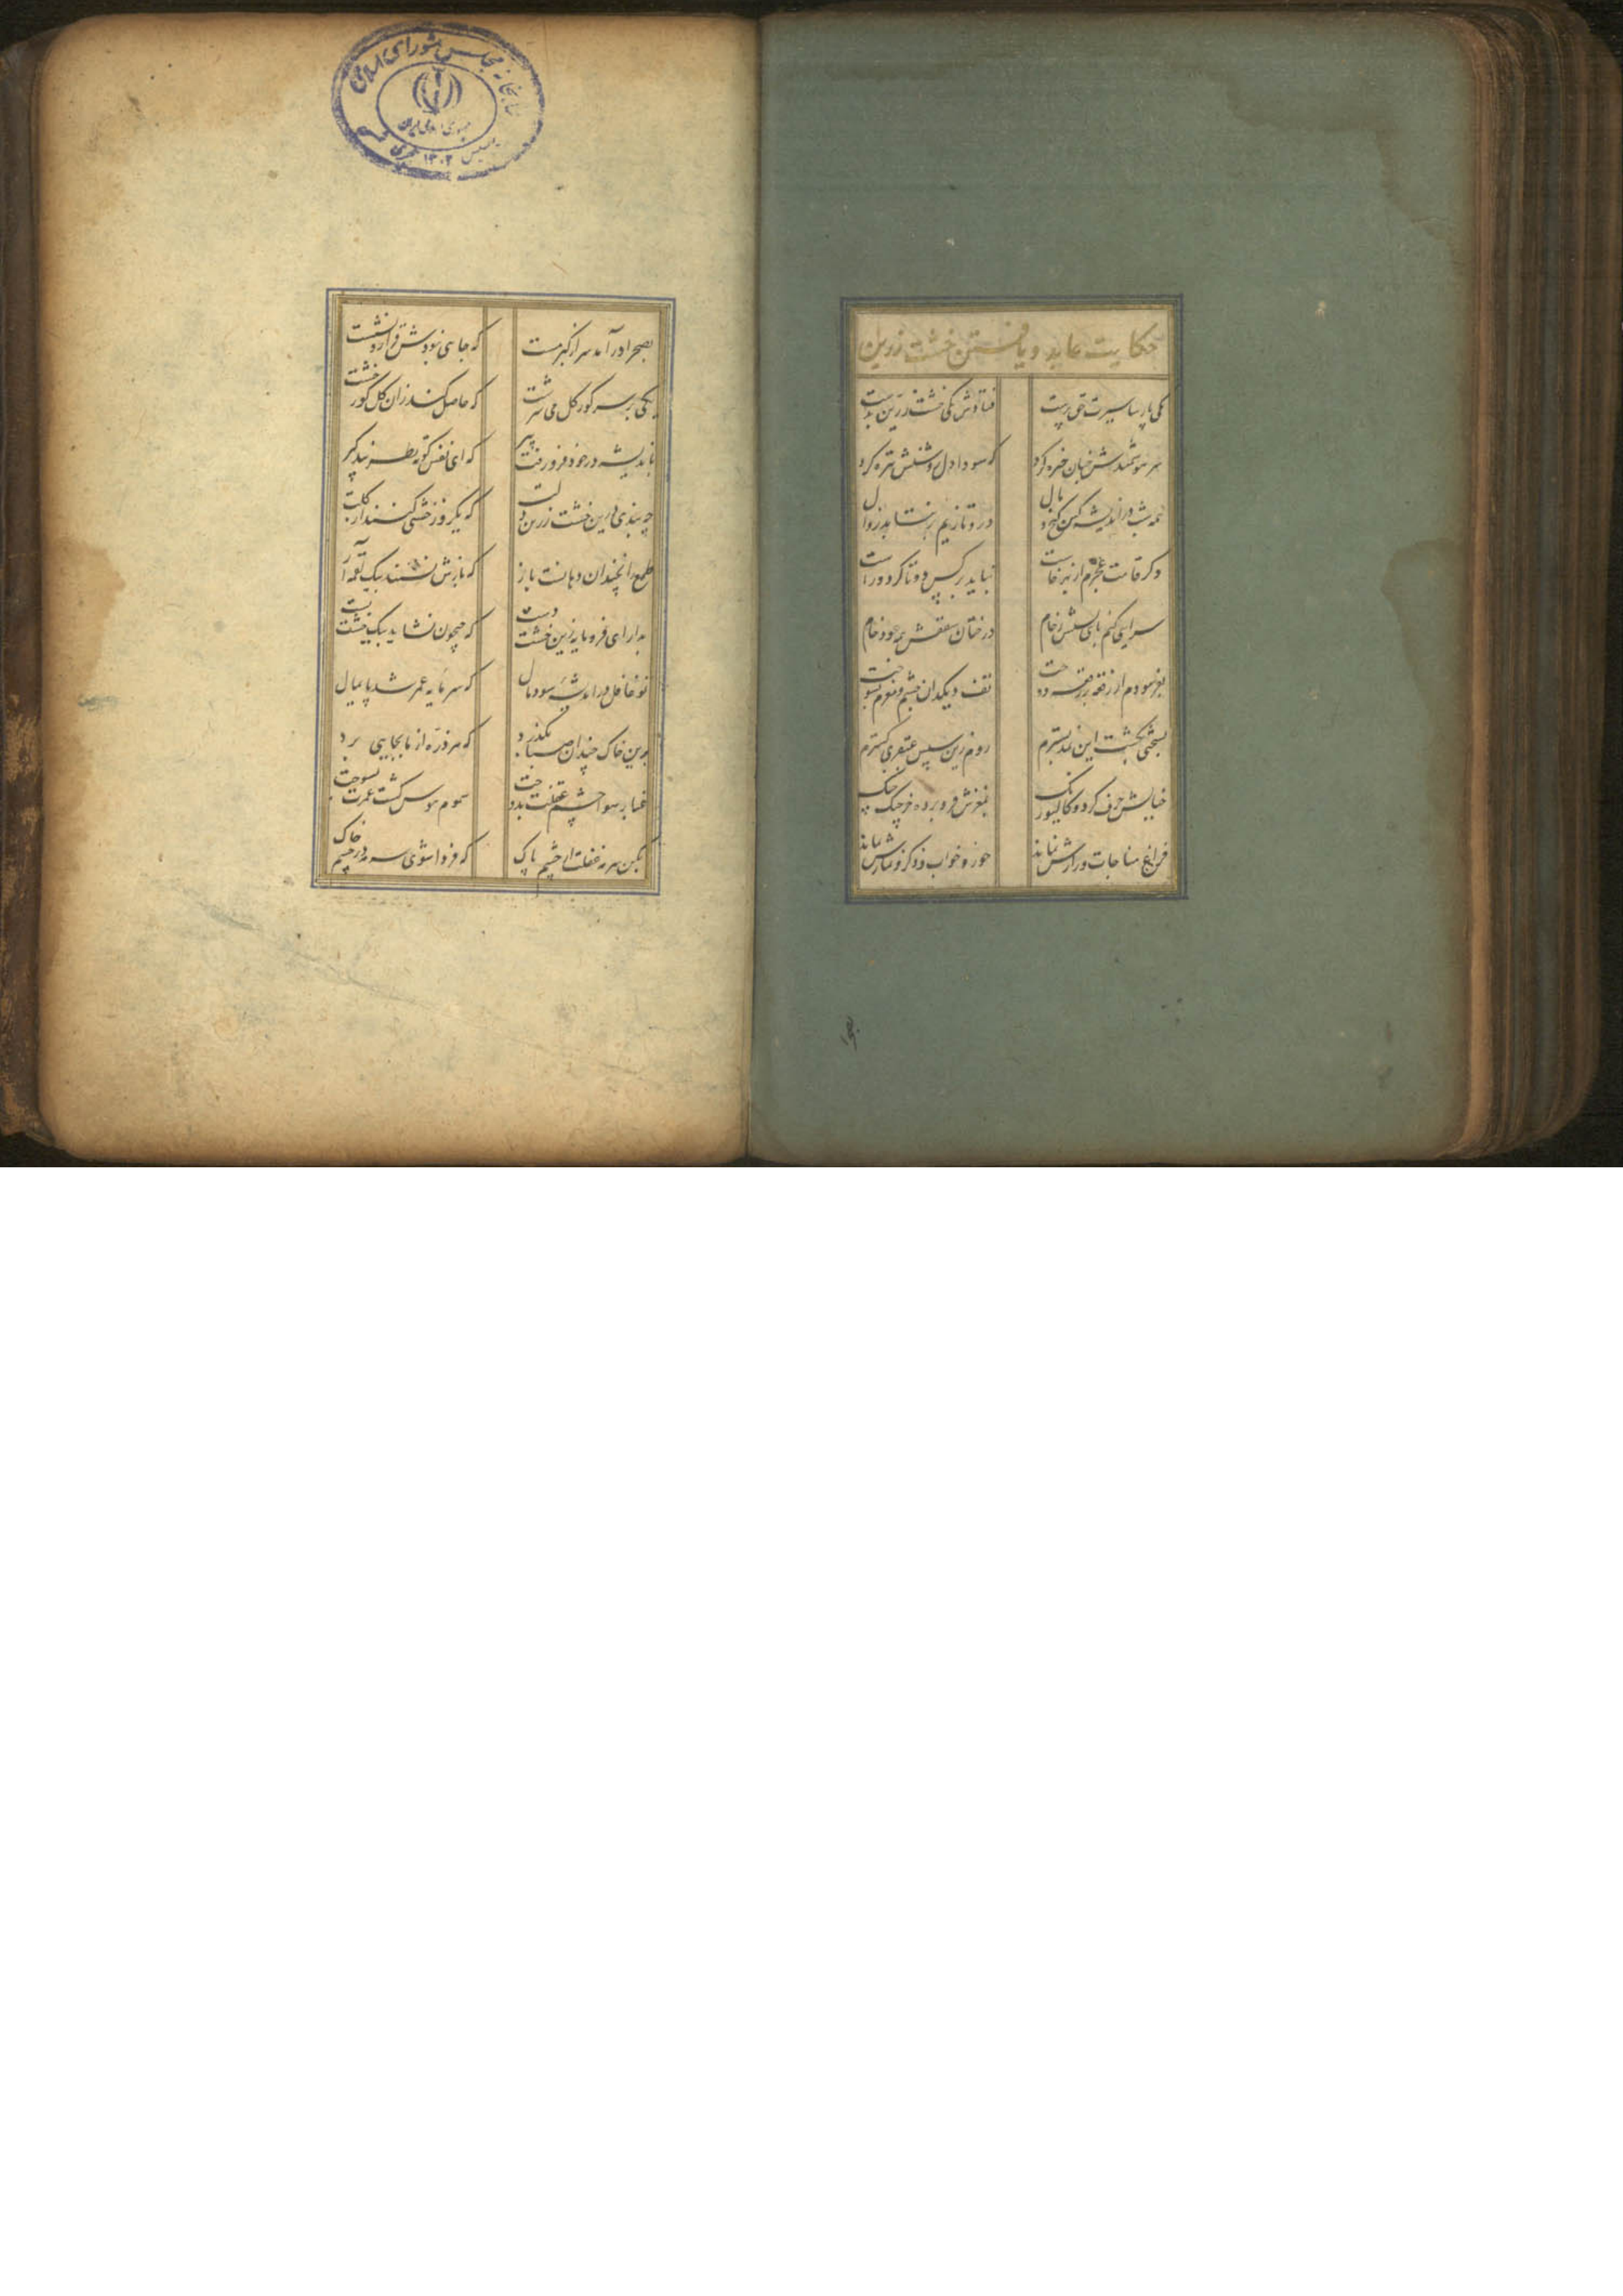 حکایت عابد و یافتن خشت زرین
یکی پارسا سیرت حق پرست فتادش یکی خشت زرین بدست
سر هوشمندش چنان خیره کرد که سودا دل روشنش تیره کرد
همه شب در اندیشه کین گنج و مال درو تا زیم ره نیابد زوال
دکر قامت عجزم از بهر خاست نباید بر کس دوتا کرد و راست
سرایی کنم پای بستش رخام درختان سقفش همه عود خام
بفرسودم از رقعه بر رقعه دوخت تف دیکدان چشم و مغزم بسوخت
بسختی بکشت این نمد بسترم روم زین سپس عبقری کسترم
خیالش خرف کرد و کالیوه رنک بمغزش فرو برده خرچنک چنک
فراغ مناجات و رازش نماند خور و خواب و ذکر و نمازش نماند
بصحرا
بصحرا در آمد سر از کبر مست که جایی نبودش قرار نشست
یکی بر سر کور کل می سرشت که حاصل کند زان کل کور خشت
باندیشه در خود فرو رفت پیر که ای نفس کوته نظر پند کیر
چه بندی درین خشت زرین دلت که یکروز خشتی کنند از کلت
طمع را نچندان دهانست باز که بازش نشیند بیک لقمه آز
بدار ای فرومایه زین خشت دست که جیحون نشاید بیک خشت بست
تو غافل در اندیشه سود و مال که سرمایه عمر شد پایمال
برین خاک چندان صبا بکذرد که هر ذره از ما بجایی برد
غبار هوا چشم عقلت بدوخت سموم هوس کشت عمرت بسوخت
بکن سرمه غفلت از چشم پاک که فردا شوی سرمه در چشم خاک
کتابخانه مجلس شورای اسلامی
جمهوری اسلامی ایران
تاسیس ۱۳۰۲